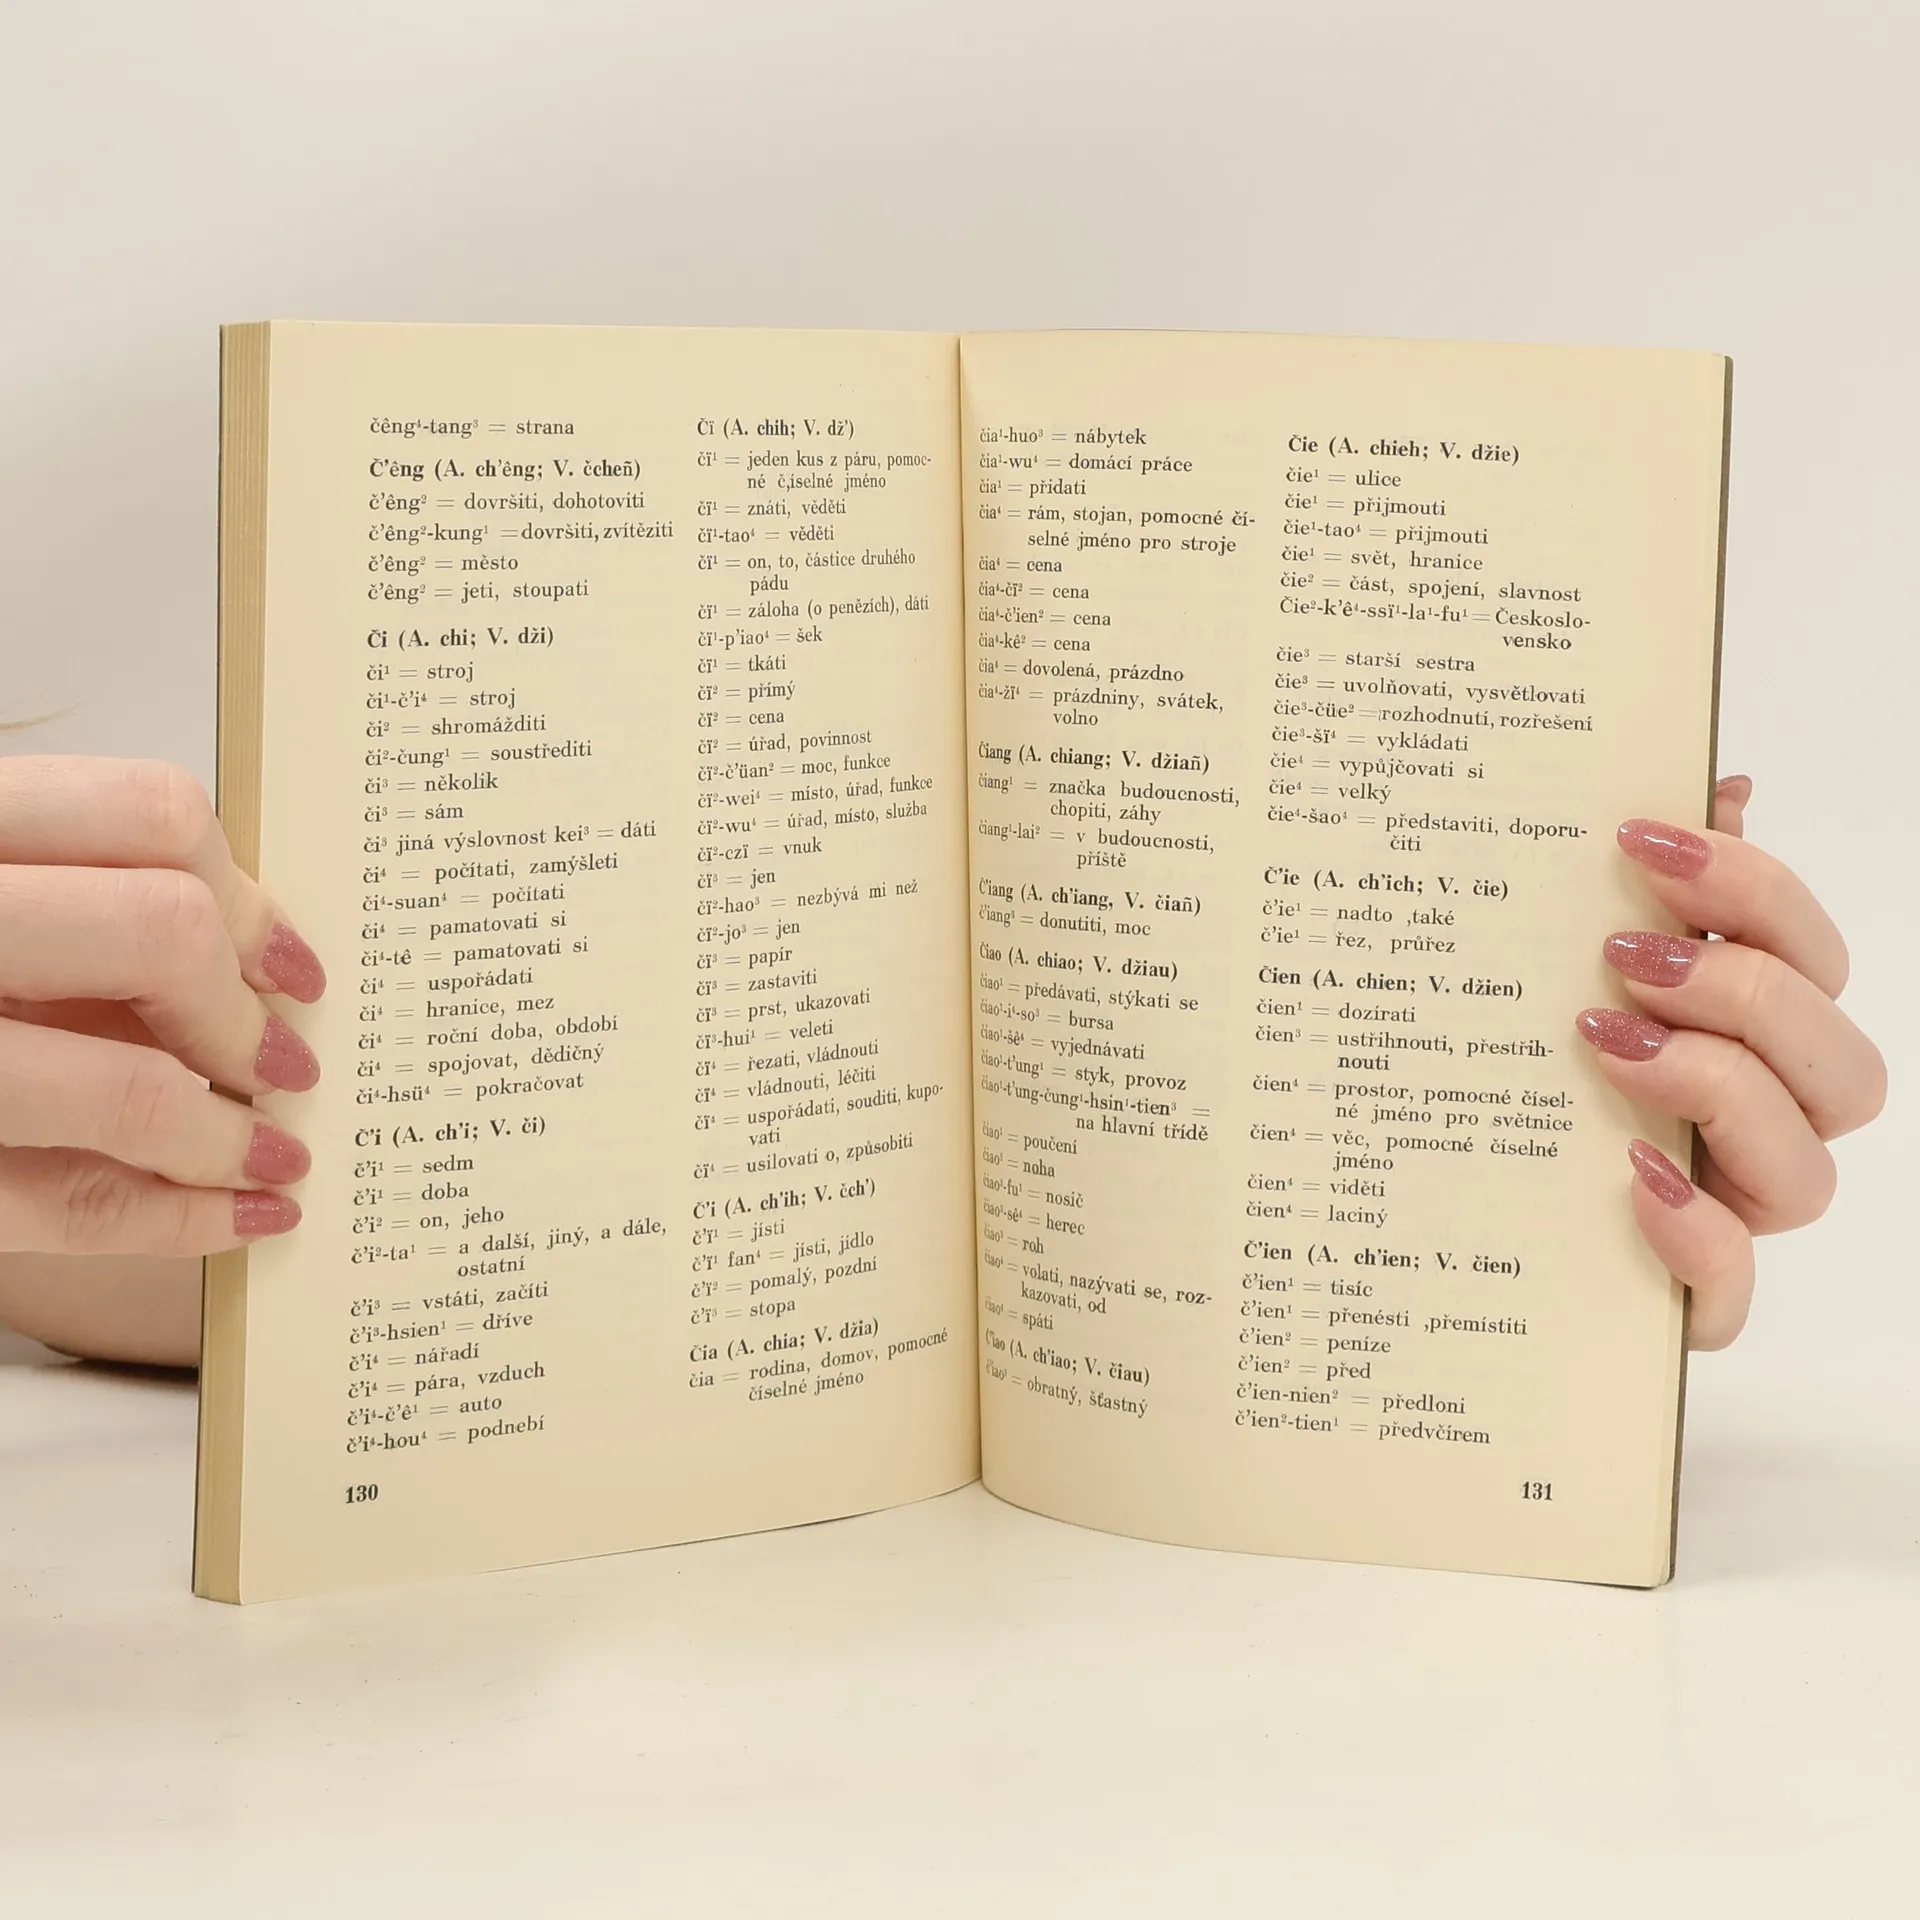 čêng⁴-tang³ = strana
Č’êng (A. ch’êng; V. čcheñ)
č’êng² = dovršiti, dohotoviti
č’êng²-kung¹ = dovršiti, zvítěziti
č’êng² = město
č’êng² = jeti, stoupati
Či (A. chi; V. dži)
či¹ = stroj
či¹-č’i⁴ = stroj
či² = shromážditi
či²-čung¹ = soustřediti
či³ = několik
či³ = sám
či³ jiná výslovnost kei³ = dáti
či⁴ = počítati, zamýšleti
či⁴-suan⁴ = počítati
či⁴ = pamatovati si
či⁴-tê = pamatovati si
či⁴ = uspořádati
či⁴ = hranice, mez
či⁴ = roční doba, období
či⁴ = spojovat, dědičný
či⁴-hsü⁴ = pokračovat
Č’i (A. ch’i; V. či)
č’i¹ = sedm
č’i¹ = doba
č’i² = on, jeho
č’i²-ta¹ = a další, jiný, a dále,
ostatní
č’i³ = vstáti, začíti
č’i³-hsien¹ = dříve
č’i⁴ = nářadí
č’i⁴ = pára, vzduch
č’i⁴-č’ê¹ = auto
č’i⁴-hou⁴ = podnebí
130
Čï (A. chih; V. dž’)
čï¹ = jeden kus z páru, pomoc-
né č,íselné jméno
čï¹ = znáti, věděti
čï¹-tao⁴ = věděti
čï¹ = on, to, částice druhého
pádu
čï¹ = záloha (o penězích), dáti
čï¹-p’iao⁴ = šek
čï¹ = tkáti
čï² = přímý
čï² = cena
čï² = úřad, povinnost
čï²-č’üan² = moc, funkce
čï²-wei⁴ = místo, úřad, funkce
čï²-wu⁴ = úřad, místo, služba
čï²-czï = vnuk
čï³ = jen
čï²-hao³ = nezbývá mi než
čï²-jo³ = jen
čï³ = papír
čï³ = zastaviti
čï³ = prst, ukazovati
čï³-hui¹ = veleti
čï⁴ = řezati, vládnouti
čï⁴ = vládnouti, léčiti
čï⁴ = uspořádati, souditi, kupo-
vati
čï⁴ = usilovati o, způsobiti
Č’i (A. ch’ih; V. čch’)
č’ï¹ = jísti
č’ï¹ fan⁴ = jísti, jídlo
č’ï² = pomalý, pozdní
č’ï³ = stopa
Čia (A. chia; V. džia)
čia = rodina, domov, pomocné
číselné jméno
čia¹-huo³ = nábytek
čia¹-wu⁴ = domácí práce
čia¹ = přidati
čia⁴ = rám, stojan, pomocné čí-
selné jméno pro stroje
čia⁴ = cena
čia⁴-čï² = cena
čia⁴-č’ien² = cena
čia⁴-kê² = cena
čia⁴ = dovolená, prázdno
čia⁴-žï⁴ = prázdniny, svátek,
volno
Čiang (A. chiang; V. džiañ)
čiang¹ = značka budoucnosti,
chopiti, záhy
čiang¹-lai² = v budoucnosti,
příště
Č’iang (A. ch’iang, V. čiañ)
č’iang³ = donutiti, moc
Čiao (A. chiao; V. džiau)
čiao¹ = předávati, stýkati se
čiao¹-i⁴-so³ = bursa
čiao¹-šê⁴ = vyjednávati
čiao¹-t’ung¹ = styk, provoz
čiao¹-t’ung-čung¹-hsin¹-tien³ =
na hlavní třídě
čiao¹ = poučení
čiao¹ = noha
čiao¹-fu¹ = nosič
čiao³-sê⁴ = herec
čiao³ = roh
čiao⁴ = volati, nazývati se, roz-
kazovati, od
čiao⁴ = spáti
Č’iao (A. ch’iao; V. čiau)
č’iao³ = obratný, šťastný
Čie (A. chieh; V. džie)
čie¹ = ulice
čie¹ = přijmouti
čie¹-tao⁴ = přijmouti
čie¹ = svět, hranice
čie² = část, spojení, slavnost
Čie²-k’ê⁴-ssï¹-la¹-fu¹ = Českoslo-
vensko
čie³ = starší sestra
čie³ = uvolňovati, vysvětlovati
čie³-čüe² = rozhodnutí, rozřešení
čie³-šï⁴ = vykládati
čie⁴ = vypůjčovati si
čie⁴ = velký
čie⁴-šao⁴ = představiti, doporu-
čiti
Č’ie (A. ch’ich; V. čie)
č’ie¹ = nadto ,také
č’ie¹ = řez, průřez
Čien (A. chien; V. džien)
čien¹ = dozírati
čien³ = ustřihnouti, přestřih-
nouti
čien⁴ = prostor, pomocné čísel-
né jméno pro světnice
čien⁴ = věc, pomocné číselné
jméno
čien⁴ = viděti
čien⁴ = laciný
Č’ien (A. ch’ien; V. čien)
č’ien¹ = tisíc
č’ien¹ = přenésti ,přemístiti
č’ien² = peníze
č’ien² = před
č’ien-nien² = předloni
č’ien²-tien¹ = předvčírem
131